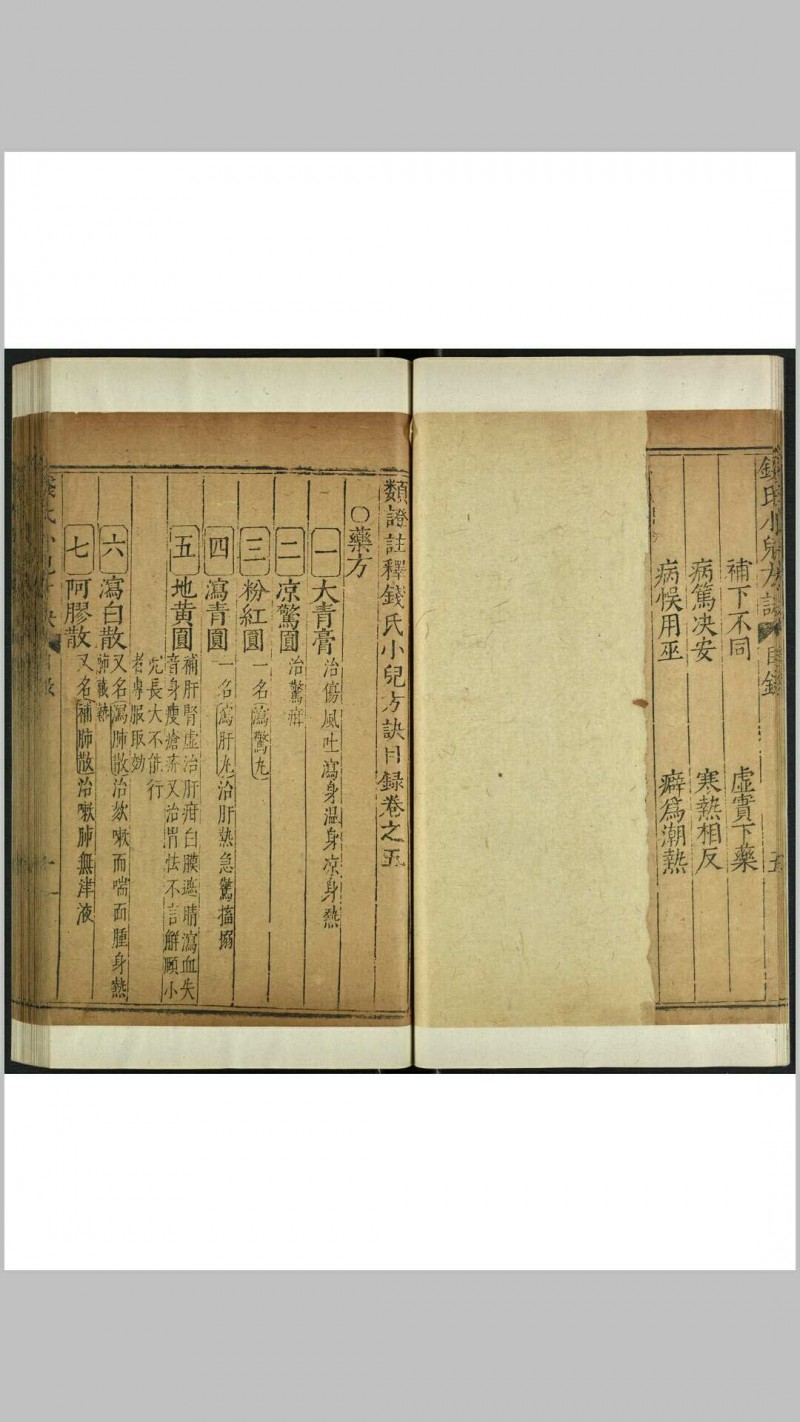 錢氏小兒方訣 目録 五
補下不同 虛實下藥
病篤决安 寒熱相反
病悮用巫 癖爲潮熱
類證註釋錢氏小兒方訣目録卷之五
〇藥方
一 大青膏 治傷風吐瀉身温身凉身熱
二 凉驚圓 治驚疳
三 粉紅圓 一名温驚丸
四 瀉青圓 一名瀉肝丸治肝熱急驚搐搦
五 地黄圓 補肝腎虛治肝疳白膜遮睛瀉血失
音身瘦瘡疥又治胃怯不言解顱小
兒長大不能行
者專服取効
六 瀉白散 又名瀉肺散治欬嗽而喘面腫身熱
肺藏熱
七 阿膠散 又名補肺散治嗽肺無津液